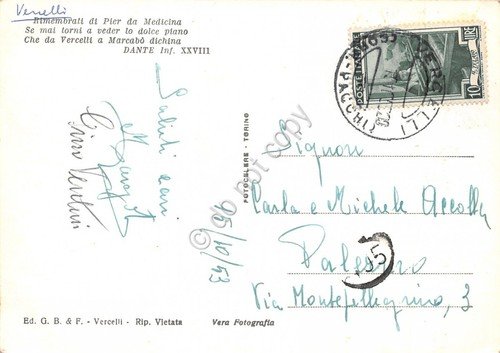 Vercelli
Rimembrati di Pier da Medicina
Se mai torni a veder lo dolce piano
Che da Vercelli a Marcabò dichina
DANTE Inf. XXVIII
POSTE ITALIANE
10 LIRE
VERCELLI
Saluti cari
Gino Venturi
15/10/53
FOTOCELERE - TORINO
Signori
Carla e Michele Accolla
Palermo
Via Montepellegrino, 3
5
Ed. G. B. & F. - Vercelli - Rip. Vietata
Vera Fotografia
do not copy